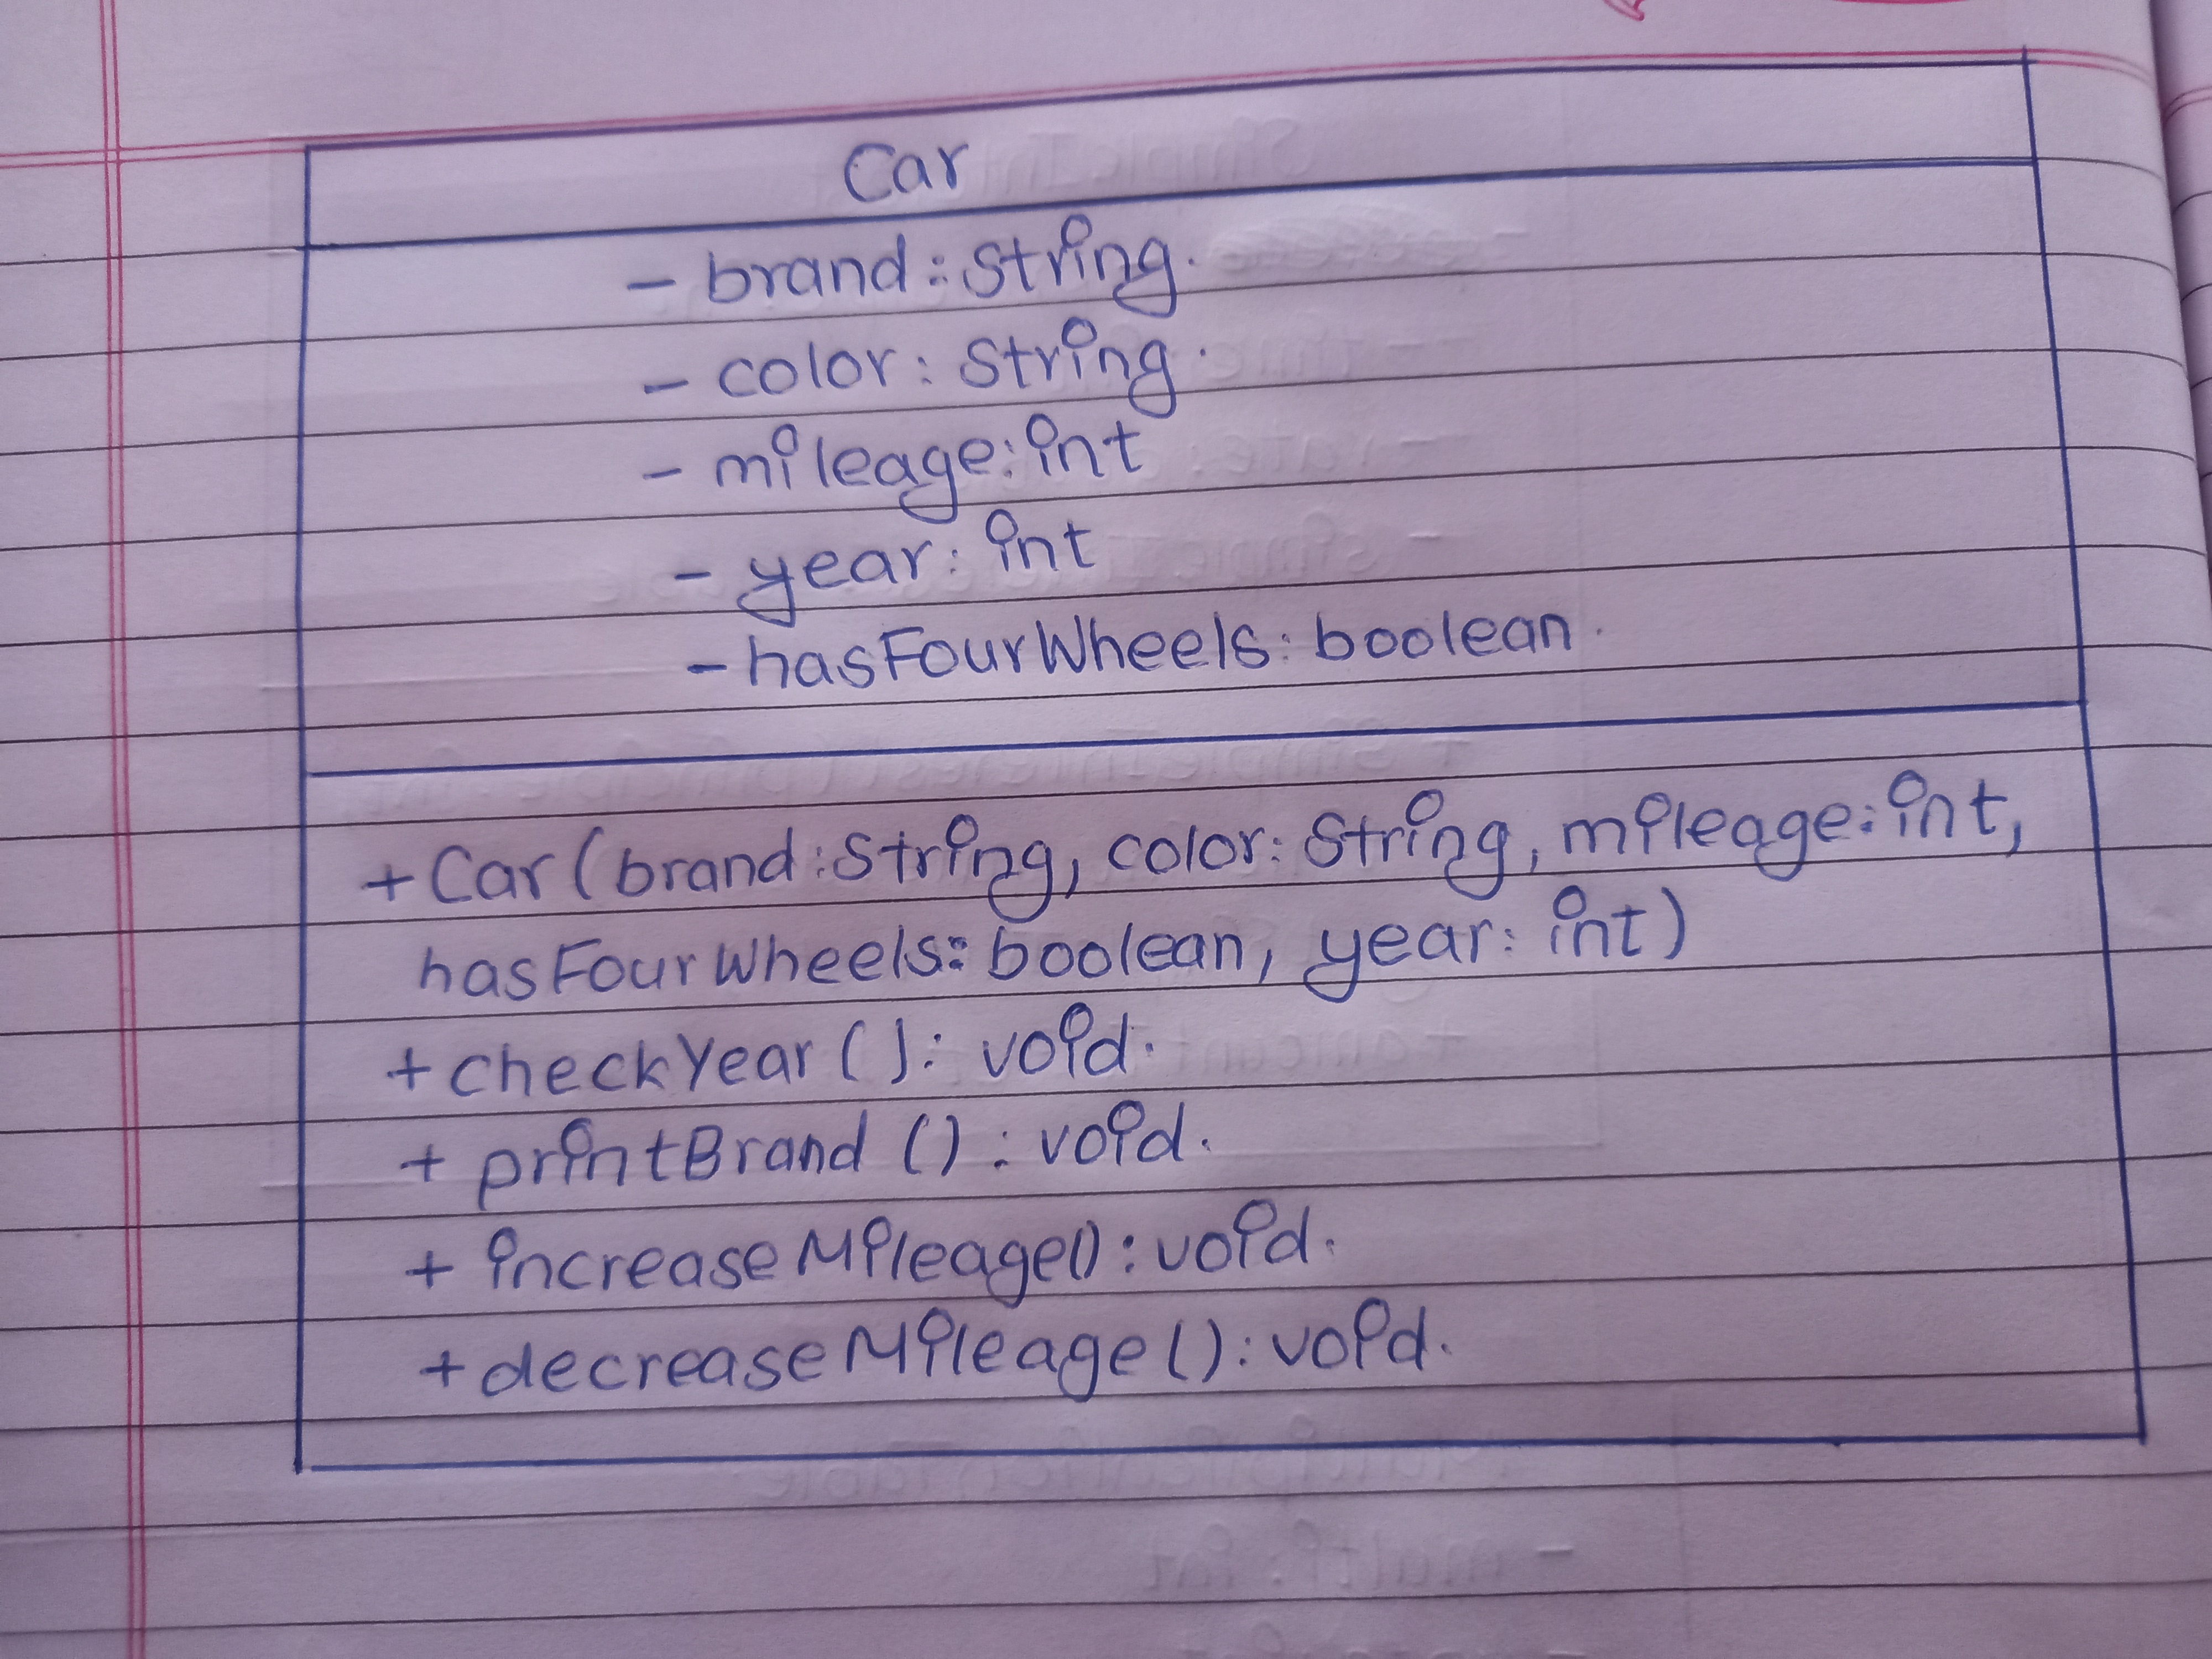 Car
- brand: String.
- color: String.
- mileage: int
- year: int
- hasFourWheels: boolean.
+ Car (brand: String, color: String, mileage: int,
hasFourWheels: boolean, year: int)
+ checkYear(): void.
+ printBrand (): void.
+ increaseMileage(): void.
+ decreaseMileage(): void.